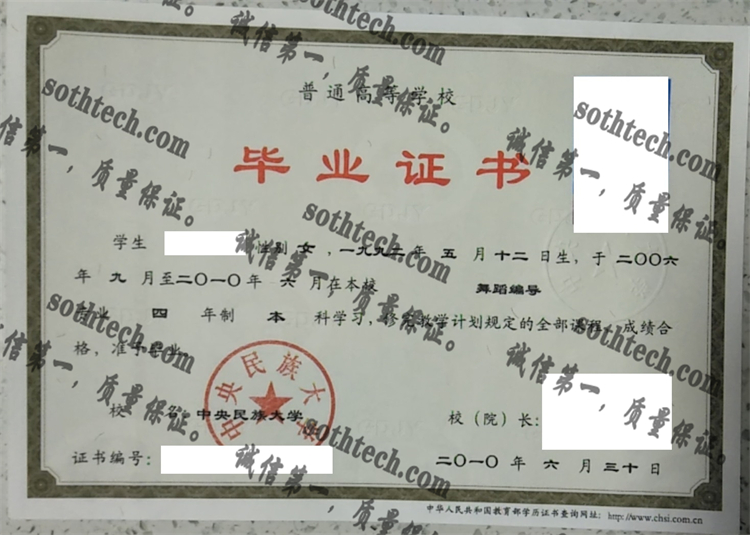 普通高等学校
毕业证书
学生 性别 女,一九九二年 五 月 十二 日生,于 二〇〇六
年 九 月至二〇一〇年 六 月在本校 舞蹈编号
专业 四 年制 本 科学习,修完教学计划规定的全部课程,成绩合
格,准予毕业。
中央民族大学
校 名:中央民族大学
校(院)长:
证书编号:
二〇一〇 年 六 月 三十 日
中华人民共和国教育部学历证书查询网址: http://www.chsi.com.cn
sothtech.com
诚信第一,质量保证。
sothtech.com
诚信第一,质量保证。
sothtech.com
诚信第一,质量保证。
sothtech.com
诚信第一,质量保证。
sothtech.com
诚信第一,质量保证。
sothtech.com
诚信第一,质量保证。
sothtech.com
诚信第一,质量保证。
sothtech.com
诚信第一,质量保证。